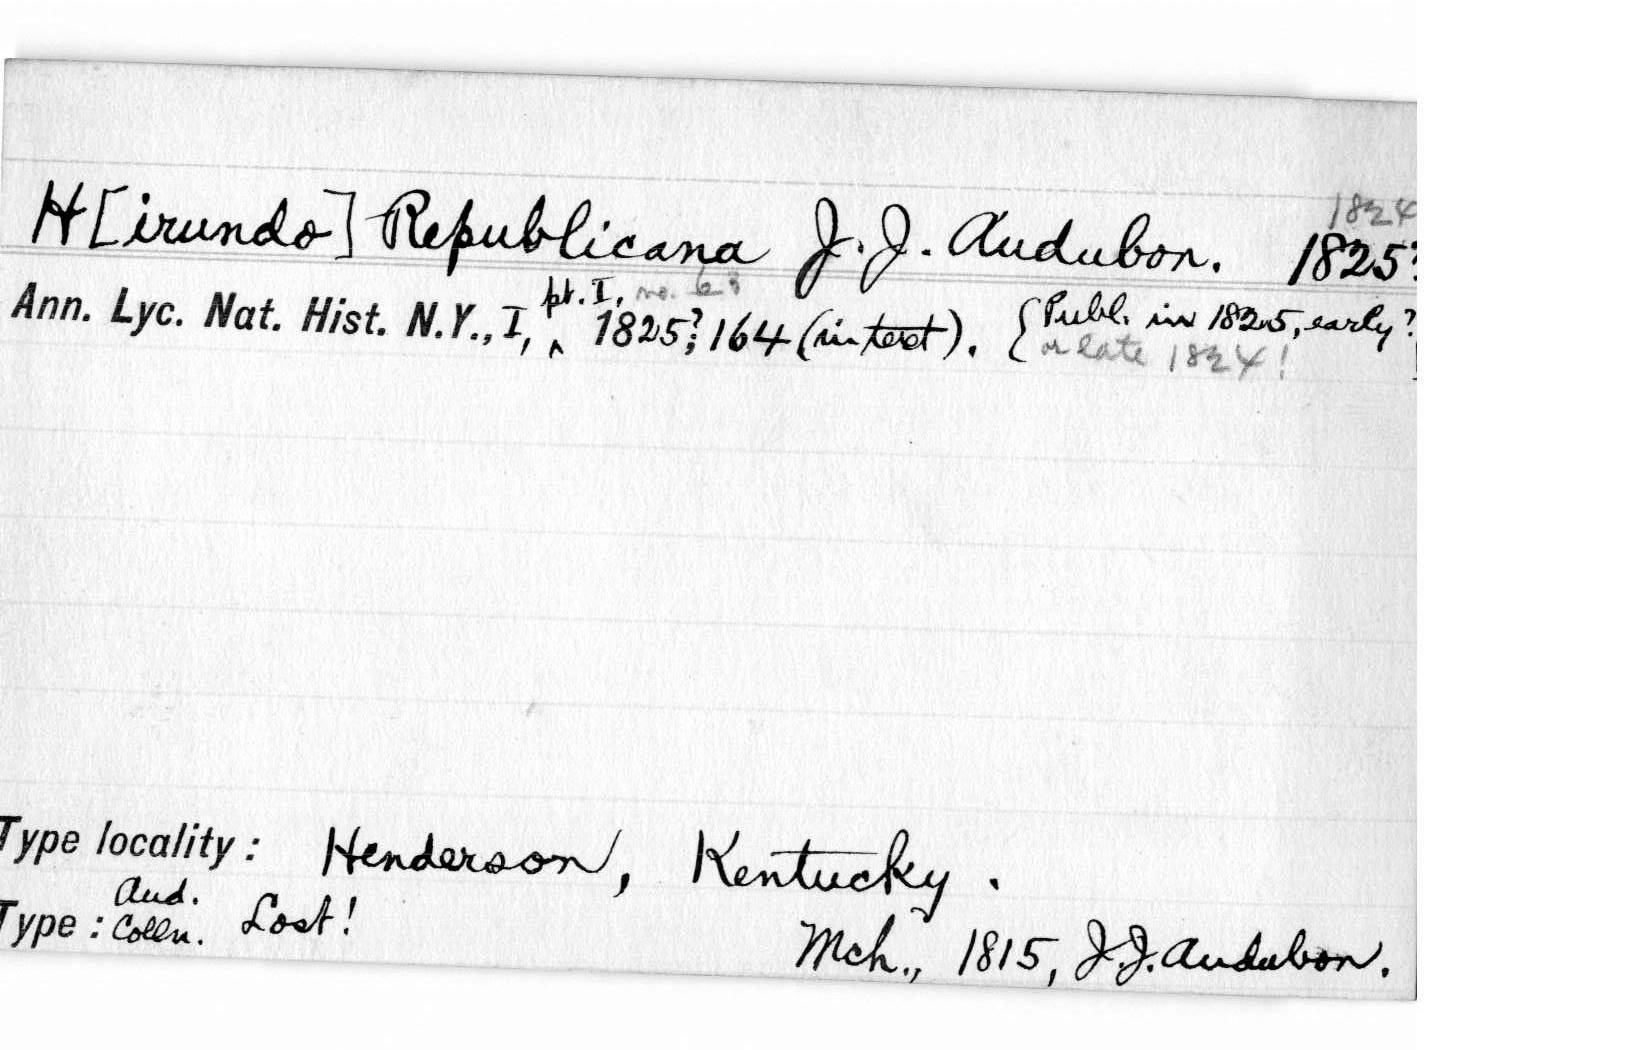 1824
H[irundo] Republicana J. J. Audubon. 1825?
pt. I, no. 6?
Ann. Lyc. Nat. Hist. N.Y., I, ^ 1825?; 164 (in text). {Publ. in 1825, early?
or late 1824!
Type locality: Henderson, Kentucky.
Aud.
Type: Colln. Lost!
Mch., 1815, J.J. Audubon.